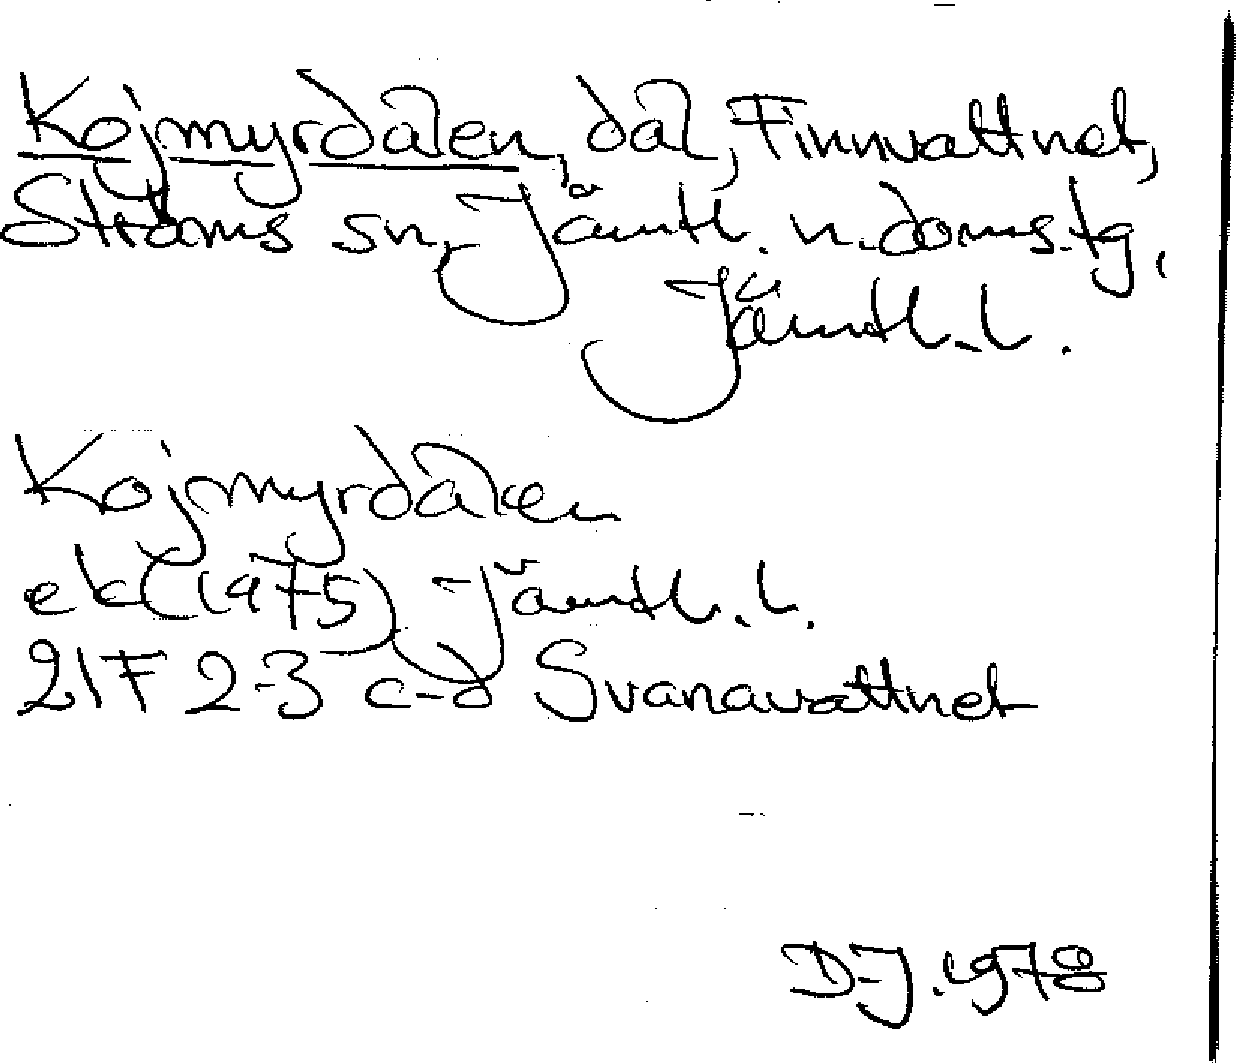 Kojmyrdalen, dal, Finnvattnet,
Ströms sn, Jämtl. n. doms.tg,
Jämtl. l.
Kojmyrdalen
ek (1975) Jämtl. l.
21F 2-3 c-d Svanavattnet
D-J. 1978